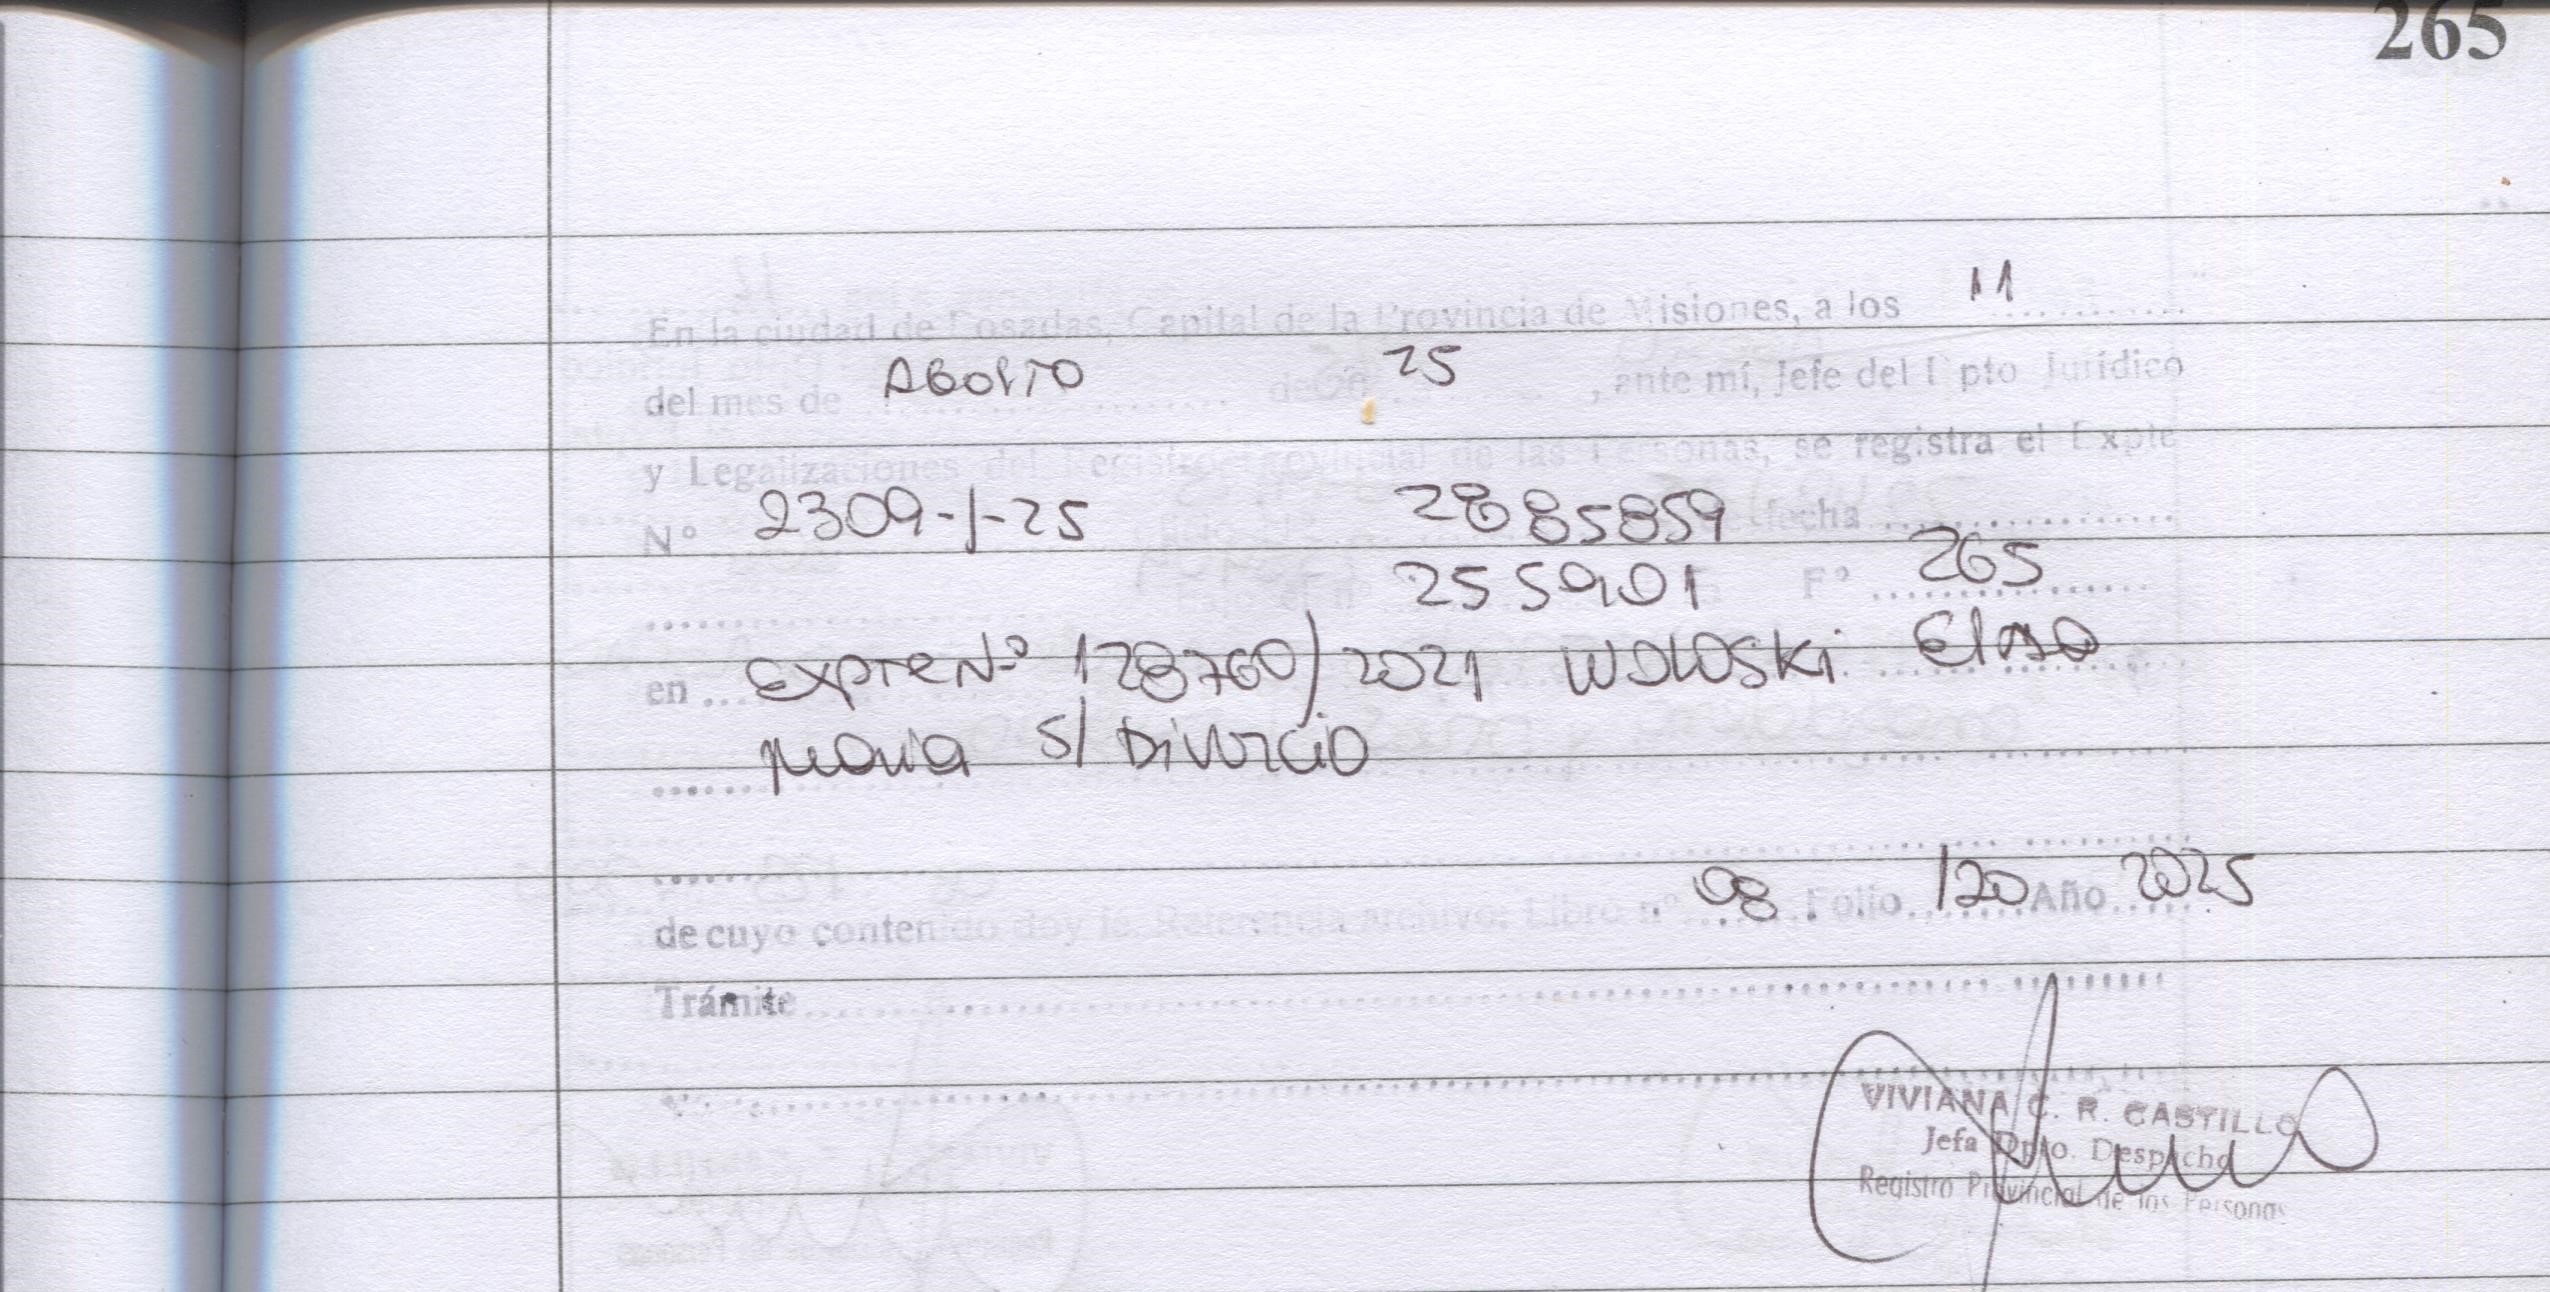 265
En la ciudad de Posadas, Capital de la Provincia de Misiones, a los 11
del mes de AGOSTO de 25, ante mí, Jefe del Dpto Jurídico
y Legalizaciones del Registro Provincial de las Personas, se registra el Expte
Nº 2309-J-25 2885859 fecha
255901 Fº 265
en EXPTE Nº 128760/2021 WOLOSKI ELSA
MARIA S/ DIVORCIO
de cuyo contenido doy fé. Referencia archivo: Libro nº 08 Folio 120 Año 2025
Trámite
VIVIANA C. R. CASTILLO
Jefa Dpto. Despacho
Registro Provincial de las Personas